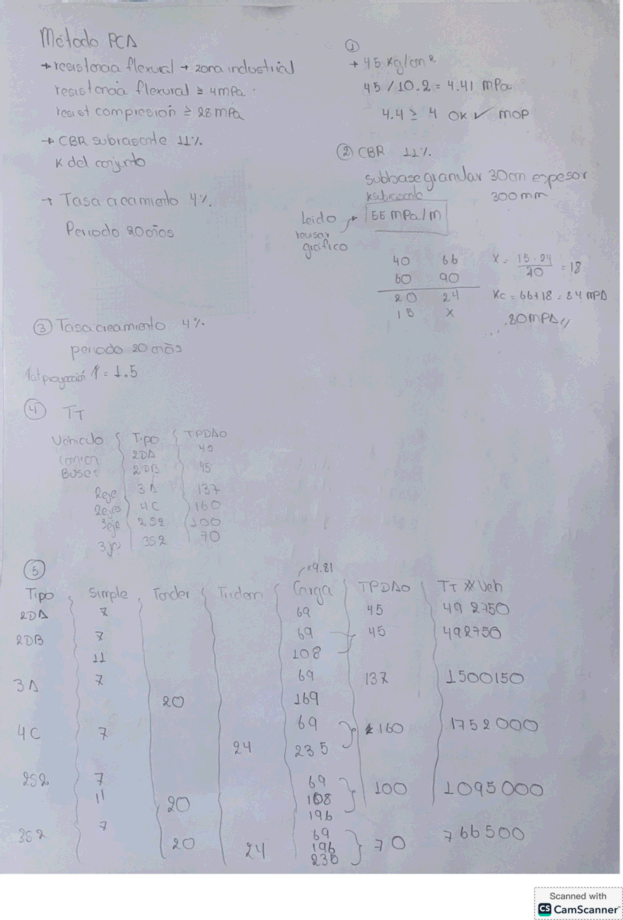 Método PCA
→ resistencia flexural → zona industrial
resistencia flexural ≥ 4mPa
resist compresión ≥ 28mPa
→ CBR subrasante 11%
K del conjunto
→ Tasa crecimiento 4%
Periodo 20 años
①
→ 45 kg/cm²
45 / 10.2 = 4.41 mPa
4.4 ≥ 4 OK ✓ MOP
② CBR 11%
subbase granular 30cm espesor
300mm
Leido → 55 mPa/m
gráfico
40 66
60 90
20 24
15 x
x = 15·24/20 = 18
Kc = 66+18 = 84 MPA
80MPA
③ Tasa crecimiento 4%
periodo 20 años
= 1.5
④ TT
Vehiculo Tipo TPDAO
2DA 45
Buses 2DB 45
2eje 3A 137
4C 160
3eje 2S2 100
3S2 70
⑤
*9.81
Tipo Simple Tandem Tridem Carga TPDAO TT * Veh
2DA 7 69 45 492750
2DB 7 69 45 492750
11 108
3A 7 69 137 1500150
20 169
4C 7 69 160 1752000
24 235
2S2 7 69 100 1095000
11 108
20 196
3S2 7 69 70 766500
20 196
24 236
Scanned with
CS CamScanner